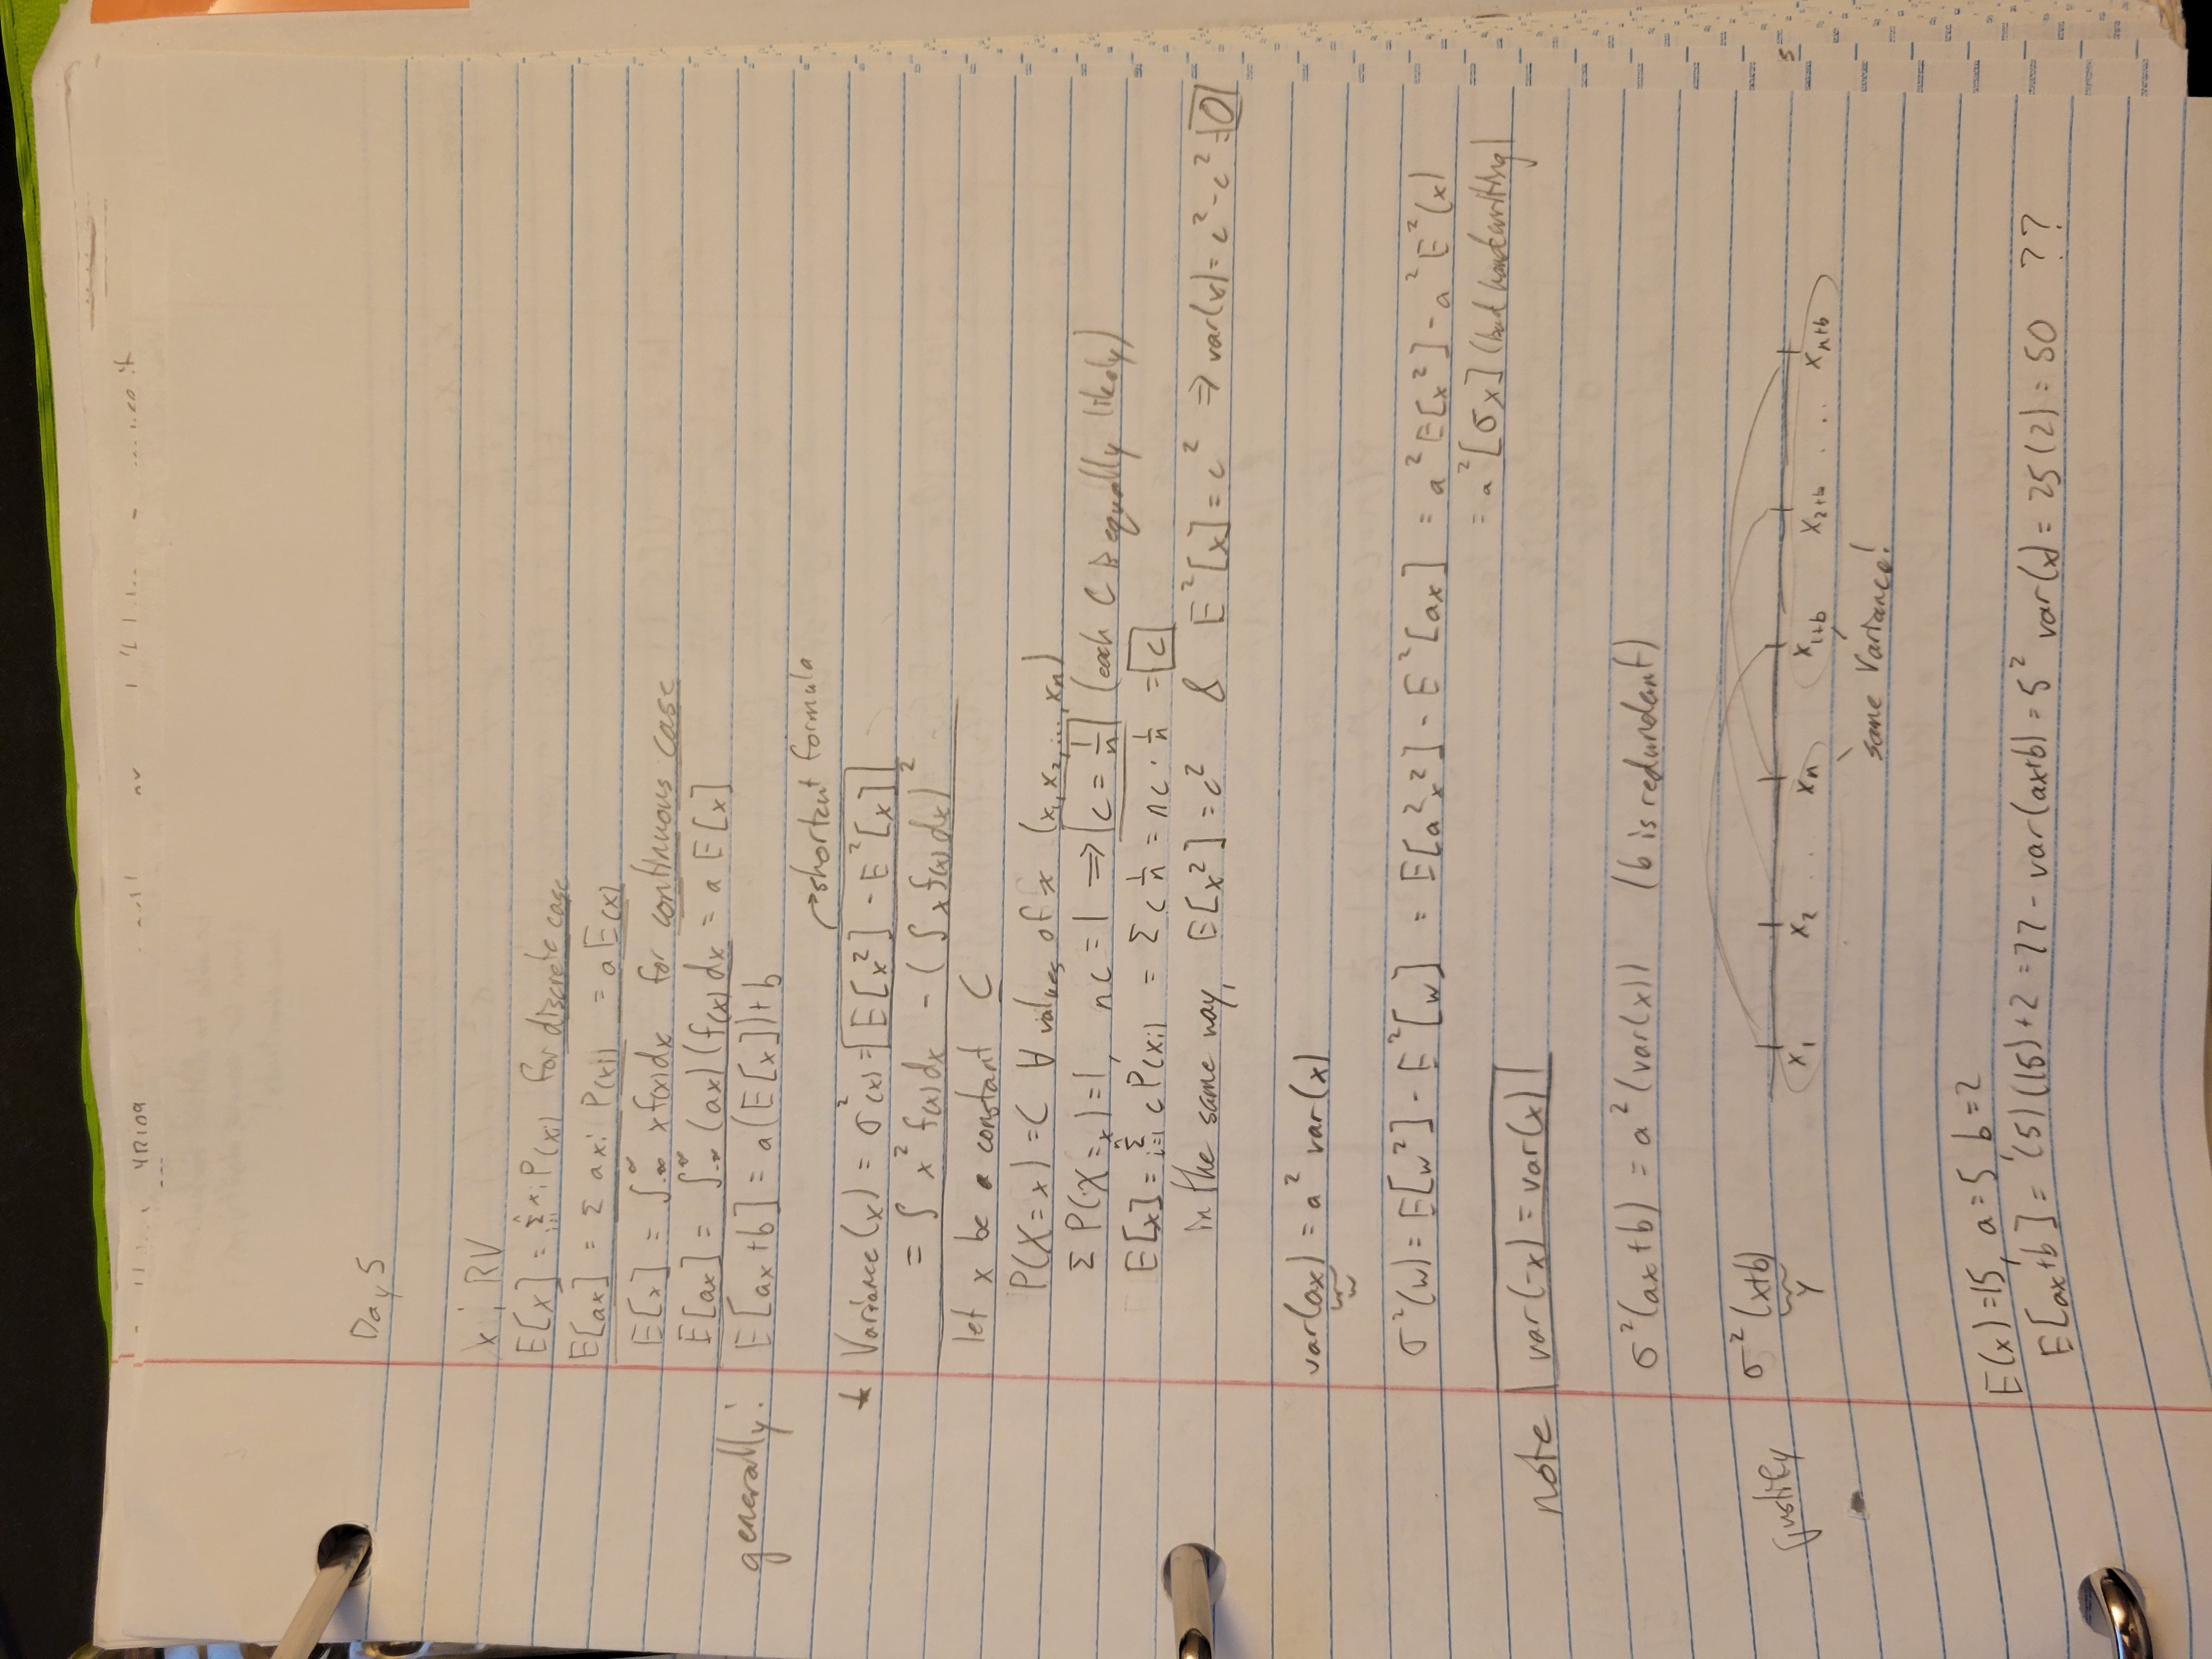 Day 5
x ; RV
E[x] = n∑i=1 xi P(xi) for discrete case
E[ax] = Σ axi P(xi) = a E(x)
E[x] = ∫-∞^∞ x f(x) dx for continuous case
E[ax] = ∫-∞^∞ (ax) (f(x) dx = a E[x]
generally: E[ax+b] = a(E[x])+b
→shortcut formula
★ Variance(x) = σ²(x) = E[x²] - E²[x]
= ∫ x² f(x) dx - (∫ x f(x) dx)²
let x be a constant C
P(X=x) = C ∀ values of x (x₁, x₂, ..., xn)
Σ P(X=x) = 1, nc = 1 ⟹ c = 1/n (each C is equally likely)
E[x] = n∑i=1 c P(xi) = Σ c 1/n = nc · 1/n = c
in the same way, E[x²] = c² & E²[x] = c² ⇒ var(x) = c² - c² = 0
var(ax) = a² var(x)
w
σ²(w) = E[w²] - E²[w] = E[a²x²] - E²[ax] = a²E[x²] - a²E²(x)
= a²[σx] (bad handwriting)
note var(-x) = var(x)
σ²(ax+b) = a²(var(x)) (b is redundant)
justify σ²(x+b)
Y
x₁ x₂ ... xn x1+b x2+b ... xn+b
same Variance!
E(x)=15, a=5, b=2
E[ax+b] = (5)(15)+2 = 77 - var(ax+b) = 5² var(x) = 25(2) = 50 ??